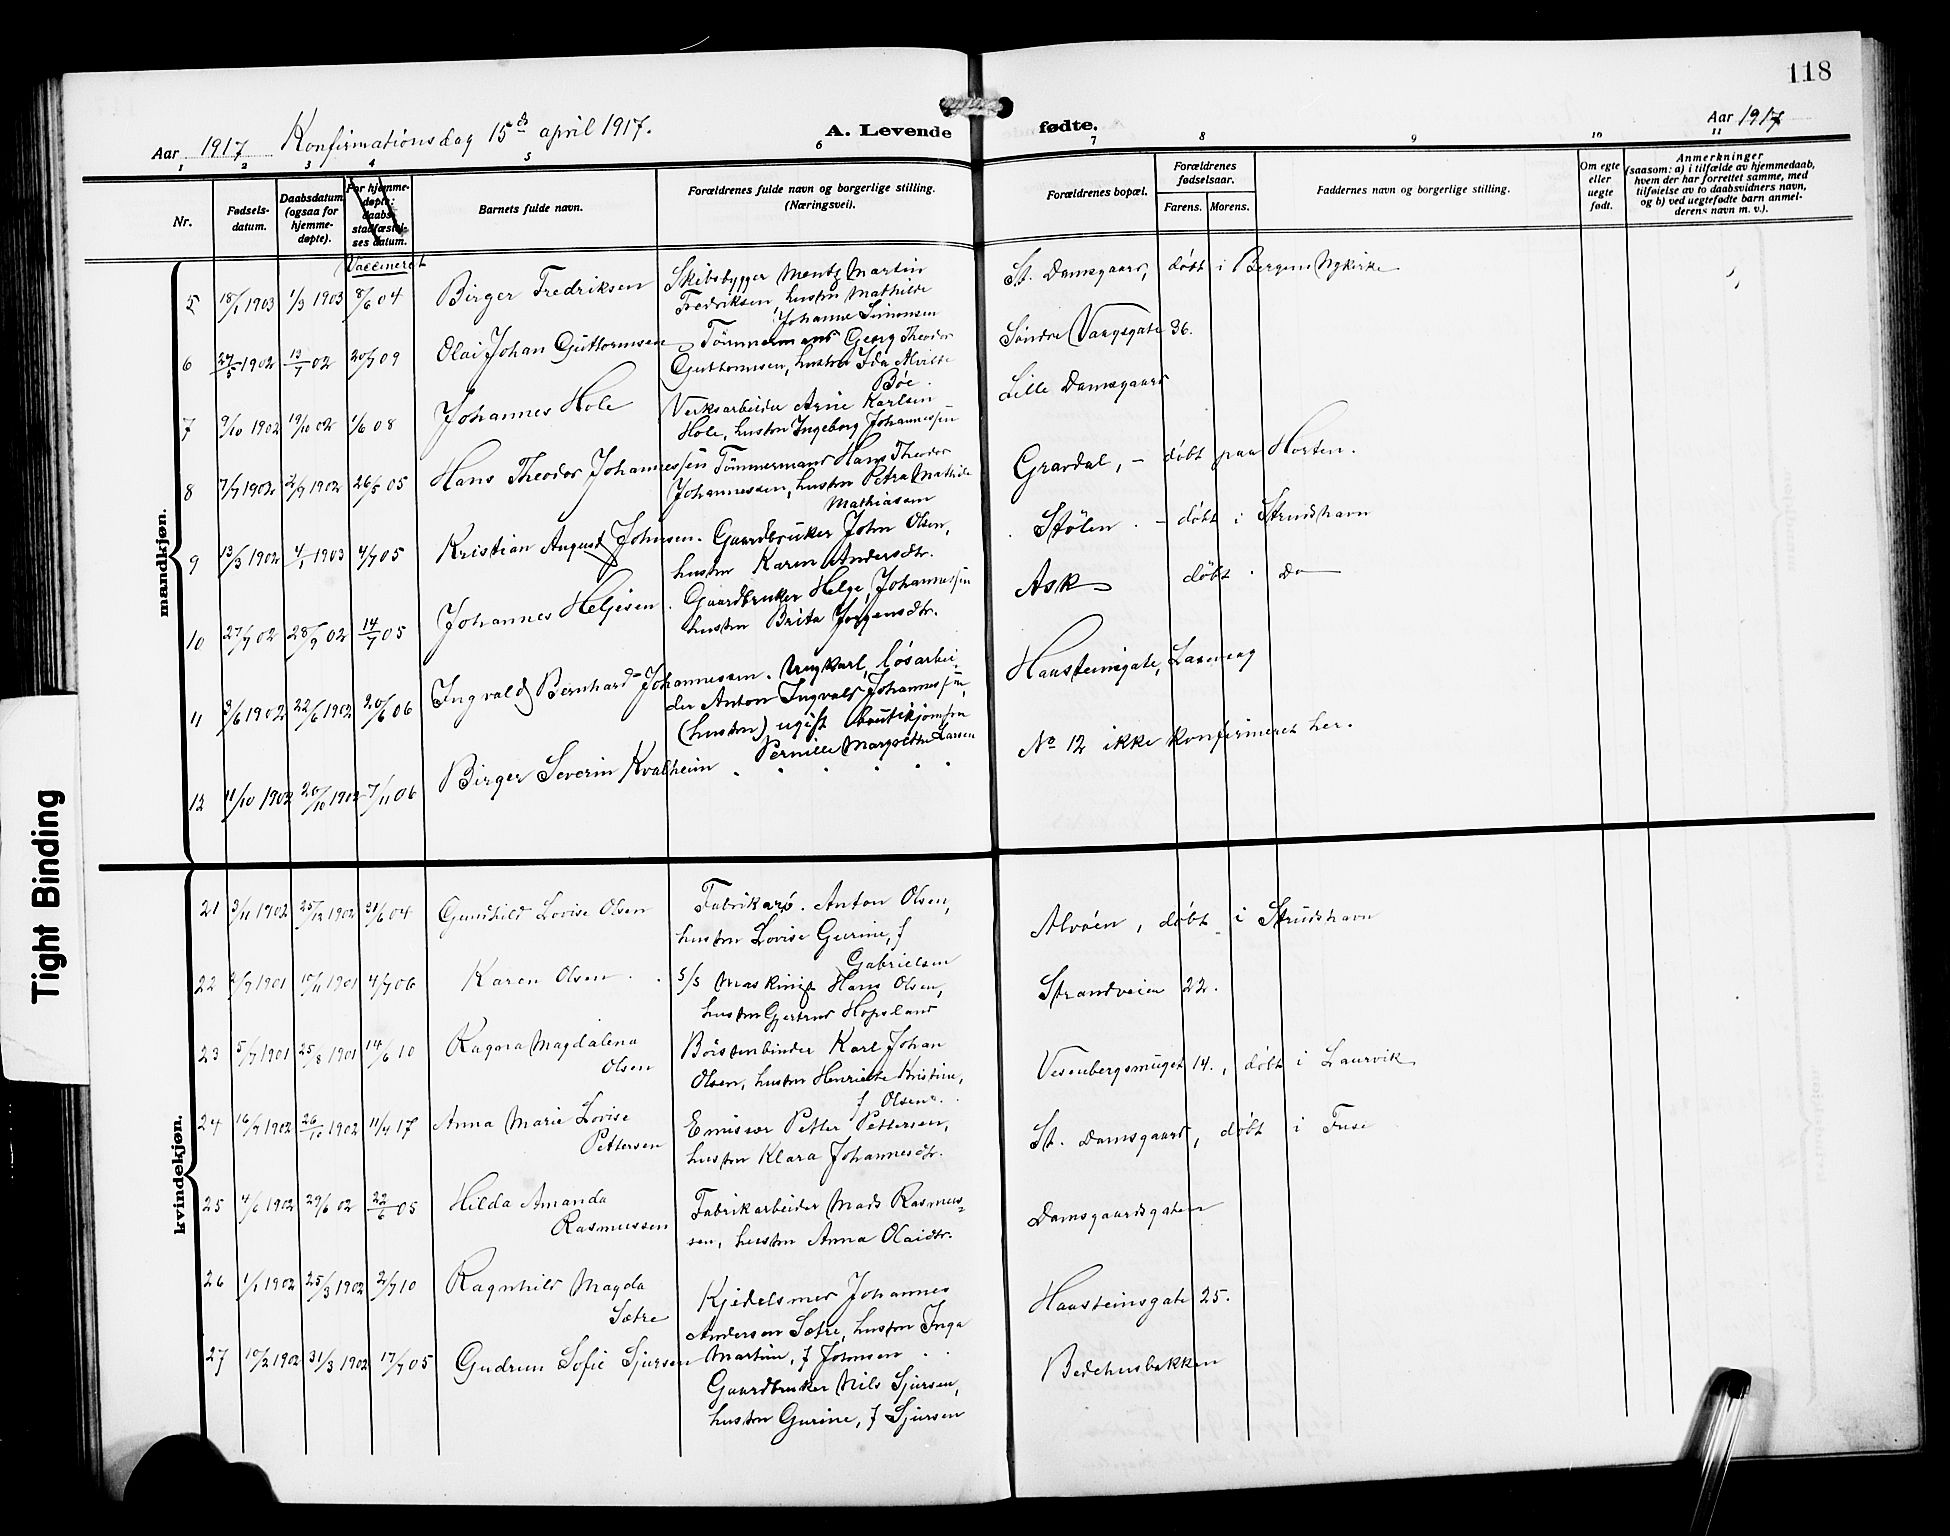 118
Aar 1917 Konfirmationsdag 15de april 1917. A. Levende fødte. Aar 1917
1 2 3 4 5 6 7 8 9 10 11
Nr.
Fødsels-
datum.
Daabsdatum
(ogsaa for
hjemme-
døpte).
For hjemme-
døpte:
daabs
stadfæstel-
ses datum.
Vaccineret
Barnets fulde navn.
Forældrenes fulde navn og borgerlige stilling.
(Næringsvei).
Forældrenes bopæl.
Forældrenes
fødselsaar.
Farens. Morens.
Faddernes navn og borgerlige stilling.
Om egte
eller
uegte
født.
Anmerkninger
(saasom: a) i tilfælde av hjemmedaab,
hvem der har forrettet samme, med
tilføielse av to daabsvidners navn,
og b) ved uegtefødte barn anmel-
derens navn m. v.).
mandkjøn.
5 18/1 1903 1/3 1903 8/6 04 Birger Fredriksen Skibsbygger Mentz Martin
Fredriksen, hustru Mathilde
Johanne Simonsen
St. Damsgaard, døbt i Bergens Nykirke
6 27/5 1902 13/7 02 20/7 09 Olai Johan Guttormsen Tømmermand Georg Theodor
Guttormsen, hustru Ida Alvilde
Bøe.
Søndre Vangsgate 36.
7 9/10 1902 19/10 02 1/6 08 Johannes Hole Verksarbeider Arne Karlsen
Hole, hustru Ingeborg Johannessen
Lille Damsgaard
8 7/7 1902 21/9 1902 26/5 05 Hans Theodor Johannessen Tømmermand Hans Theodor
Johannessen, hustru Petra Mathilde
Mathiasen
Gravdal, - døbt paa Horten.
9 13/3 1902 4/1 1903 4/7 05 Kristian August Johnsen. Gaardbruker John Olsen,
hustru Karen Andersdtr.
Stølen. - døbt i Strudshavn
10 27/7 02 28/9 02 14/7 05 Johannes Helgesen. Gaardbruker Helge Johannessen
hustru Brita Jørgensdtr.
Ask døbt. Do
11 3/6 1902 22/6 1902 20/6 06 Ingvald Bernhard Johannessen. Ungkarl, løsarbei-
der Anton Ingvald Johannessen,
(hustru) ugift butikjomfru
Pernille Margrethe Larsen
Haasteinsgate, Laxevaag
12 11/10 1902 26/10 1902 7/11 06 Birger Severin Kvalheim
No 12 ikke konfirmeret her.
kvindekjøn.
21 3/11 1902 25/12 1902 21/6 04 Gunhild Lovise Olsen Fabrikarb. Anton Olsen,
hustru Lovise Gurine, f
Gabrielsen
Alvøen, døbt i Strudshavn
22 2/9 1901 10/11 1901 4/7 06 Karen Olsen. S/S Maskinist Hans Olsen,
hustru Gjertrud Hopsland
Strandveien 22.
23 5/7 1901 25/8 1901 14/6 10 Ragna Magdalena
Olsen
Børstenbinder Karl Johan
Olsen, hustru Henriette Kristine,
f Olsen.
Vesenbergsmuget 14., døbt i Laurvik
24 16/7 1902 26/10 1902 11/4 17 Anna Marie Lovise
Pettersen
Emissær Petter Pettersen,
hustru Klara Johannesdtr.
St. Damsgaard, døbt i Fuse
25 4/6 1902 29/6 02 22/6 05 Hilda Amanda
Rasmussen
Fabrikarbeider Mads Rasmus-
sen, hustru Anna Olaidtr.
Damsgaardsgaten
26 1/1 1902 25/3 1902 2/7 10 Ragnhild Magda
Sætre
Kjedelsmed Johannes
Andersen Sætre, hustru Inga
Martine, f Johnsen
Haasteinsgate 25.
27 10/2 1902 31/3 1902 17/7 05 Gudrun Sofie Sjursen
Gaardbruker Nils Sjursen,
hustru Gurine, f Sjursen
Bedehusbakken
Tight Binding